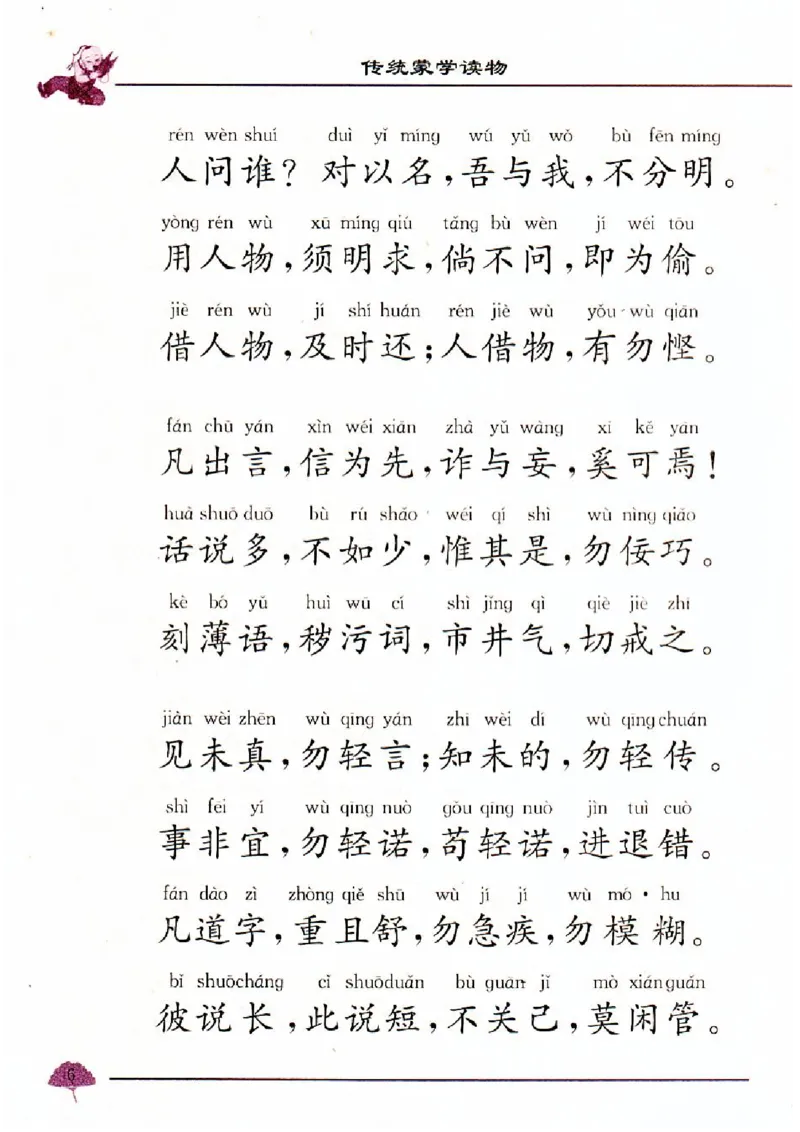 传统蒙学读物
rén wèn shuí duì yǐ míng wú yǔ wǒ bù fēn míng
人问谁？对以名，吾与我，不分明。
yòng rén wù xū míng qiú tǎng bù wèn jí wéi tōu
用人物，须明求，倘不问，即为偷。
jiè rén wù jí shí huán rén jiè wù yǒu wù qiān
借人物，及时还；人借物，有勿悭。
fán chū yán xìn wéi xiān zhà yǔ wàng xī kě yān
凡出言，信为先，诈与妄，奚可焉！
huà shuō duō bù rú shǎo wéi qí shì wù nìng qiǎo
话说多，不如少，惟其是，勿佞巧。
kè bó yǔ huì wū cí shì jǐng qì qiè jiè zhī
刻薄语，秽污词，市井气，切戒之。
jiàn wèi zhēn wù qīng yán zhī wèi dí wù qīng chuán
见未真，勿轻言；知未的，勿轻传。
shì fēi yí wù qīng nuò gǒu qīng nuò jìn tuì cuò
事非宜，勿轻诺，苟轻诺，进退错。
fán dào zì zhòng qiě shū wù jí jí wù mó · hu
凡道字，重且舒，勿急疾，勿模糊。
bǐ shuō cháng cǐ shuō duǎn bù guān jǐ mò xián guǎn
彼说长，此说短，不关己，莫闲管。
6